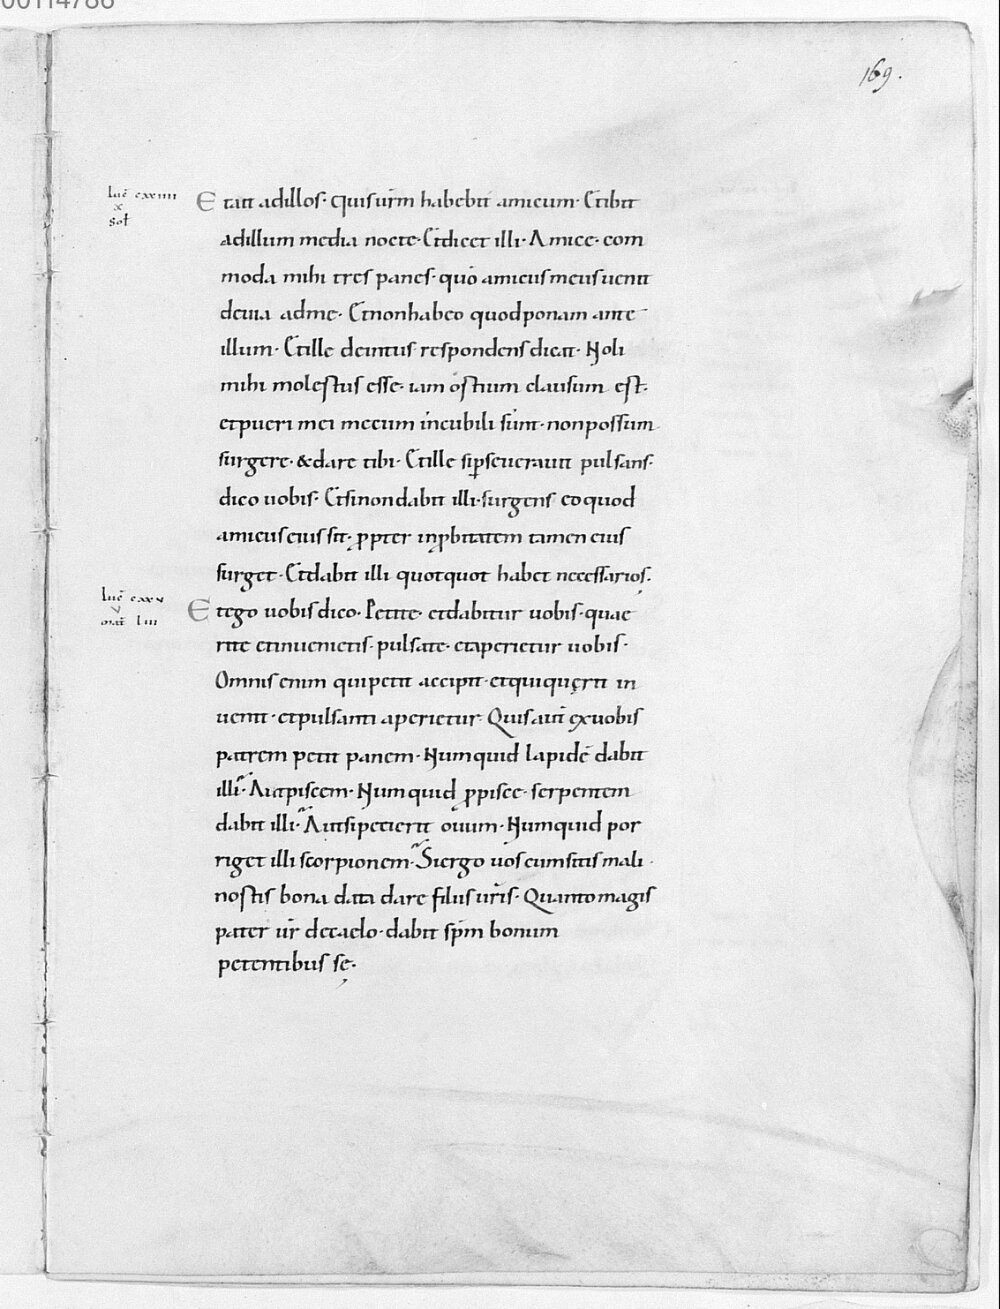 00114786
169.
Luc̄ cxxiiii
x
Sol
Et ait ad illos· quis ur̄m habebit amicum· Et ibit
ad illum media nocte· Et dicet illi· Amice· com
moda mihi tres panes· quō amicus meus uenit
de uia ad me· Et non habeo quod ponam ante
illum· Et ille de intus respondens dicat· Noli
mihi molestus esse· iam ostium clausum est·
et pueri mei mecum in cubili sunt· non possum
surgere· & dare tibi· Et ille si pseuerauit pulsans·
dico uobis· Et si non dabit illi· surgens eo quod
amicus eius sit· ppter inpbitatem tamen eius
surget· Et dabit illi quotquot habet necessarios·
Luc̄ cxxv
v
mat̄ liii
Et ego uobis dico· Petite· et dabitur uobis· quae
rite et inuenietis· pulsate· et aperietur uobis·
Omnis enim qui petit accipit· et qui quęrit in
uenit· et pulsanti aperietur· Quis aut̄ ex uobis
patrem petit panem· Numquid lapidē dabit
illi· Aut piscem· Numquid p pisce· serpentem
dabit illi· Aut si petierit ouum· Numquid por
riget illi scorpionem· Si ergo uos cum sitis mali·
nostis bona data dare filiis ur̄is· Quanto magis
pater ur̄ de caelo· dabit sp̄m bonum
petentibus se·